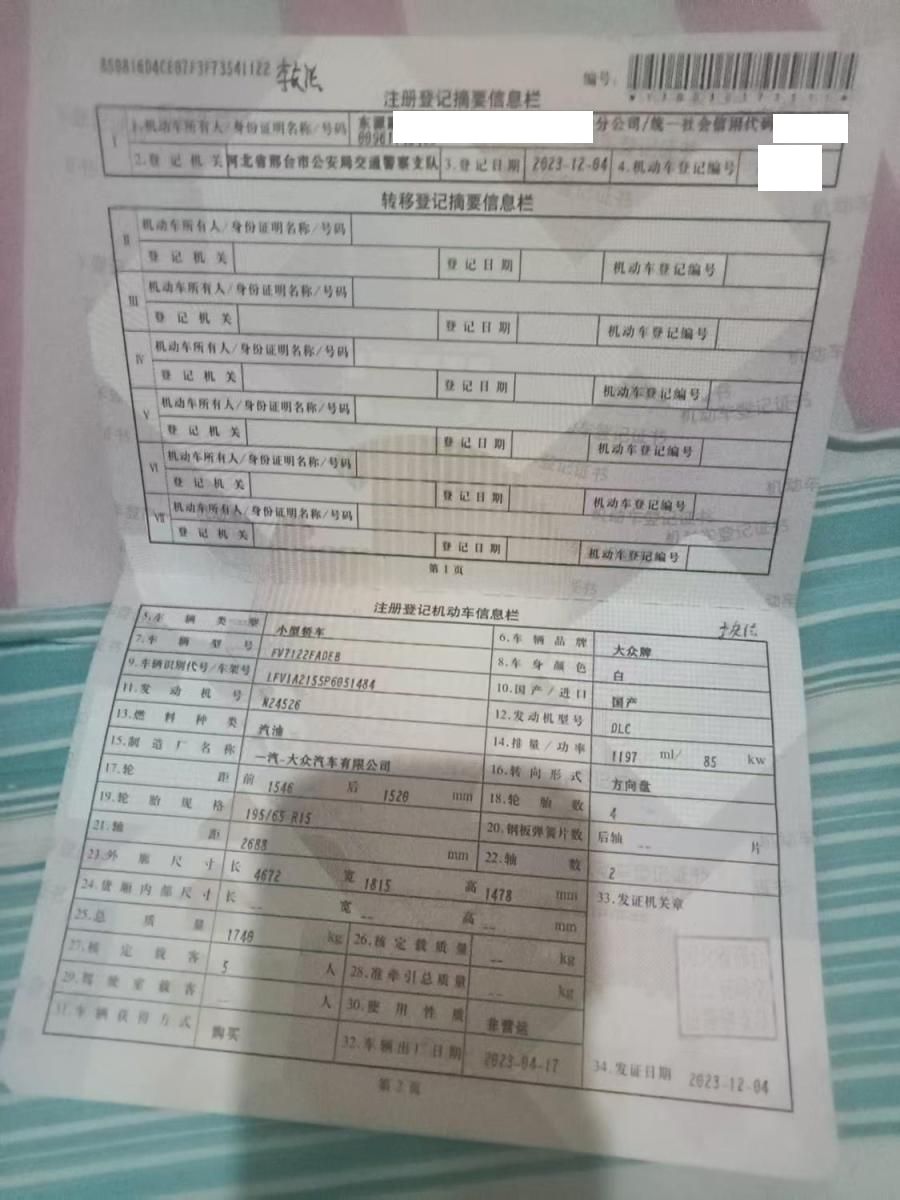 编号:
注册登记摘要信息栏
I 1.机动车所有人/身份证明名称/号码 分公司/统一社会信用代码
2.登记机关 河北省邢台市公安局交通警察支队 3.登记日期 2023-12-04 4.机动车登记编号
转移登记摘要信息栏
II 机动车所有人/身份证明名称/号码
登记机关 登记日期 机动车登记编号
III 机动车所有人/身份证明名称/号码
登记机关 登记日期 机动车登记编号
IV 机动车所有人/身份证明名称/号码
登记机关 登记日期 机动车登记编号
V 机动车所有人/身份证明名称/号码
登记机关 登记日期 机动车登记编号
VI 机动车所有人/身份证明名称/号码
登记机关 登记日期 机动车登记编号
VII 机动车所有人/身份证明名称/号码
登记机关 登记日期 机动车登记编号
第1页
注册登记机动车信息栏
5.车辆类型 小型轿车 6.车辆品牌 大众牌
7.车辆型号 FV7122FADEB 8.车身颜色 白
9.车辆识别代号/车架号 LFV1A2155P6051484 10.国产/进口 国产
11.发动机号 N24526 12.发动机型号 DLC
13.燃料种类 汽油 14.排量/功率 1197 ml/ 85 kw
15.制造厂名称 一汽-大众汽车有限公司 16.转向形式 方向盘
17.轮距 前 1546 后 1520 mm 18.轮胎数 4
19.轮胎规格 195/65 R15 20.钢板弹簧片数 后轴 -- 片
21.轴距 2688 mm 22.轴数 2
23.外廓尺寸 长 4672 宽 1815 高 1478 mm 33.发证机关章
24.货厢内部尺寸 长 -- 宽 -- 高 -- mm
25.总质量 1740 kg 26.核定载质量 -- kg
27.核定载客 5 人 28.准牵引总质量 -- kg
29.驾驶室载客 -- 人 30.使用性质 非营运
31.车辆获得方式 购买 32.车辆出厂日期 2023-04-17 34.发证日期 2023-12-04
第2页